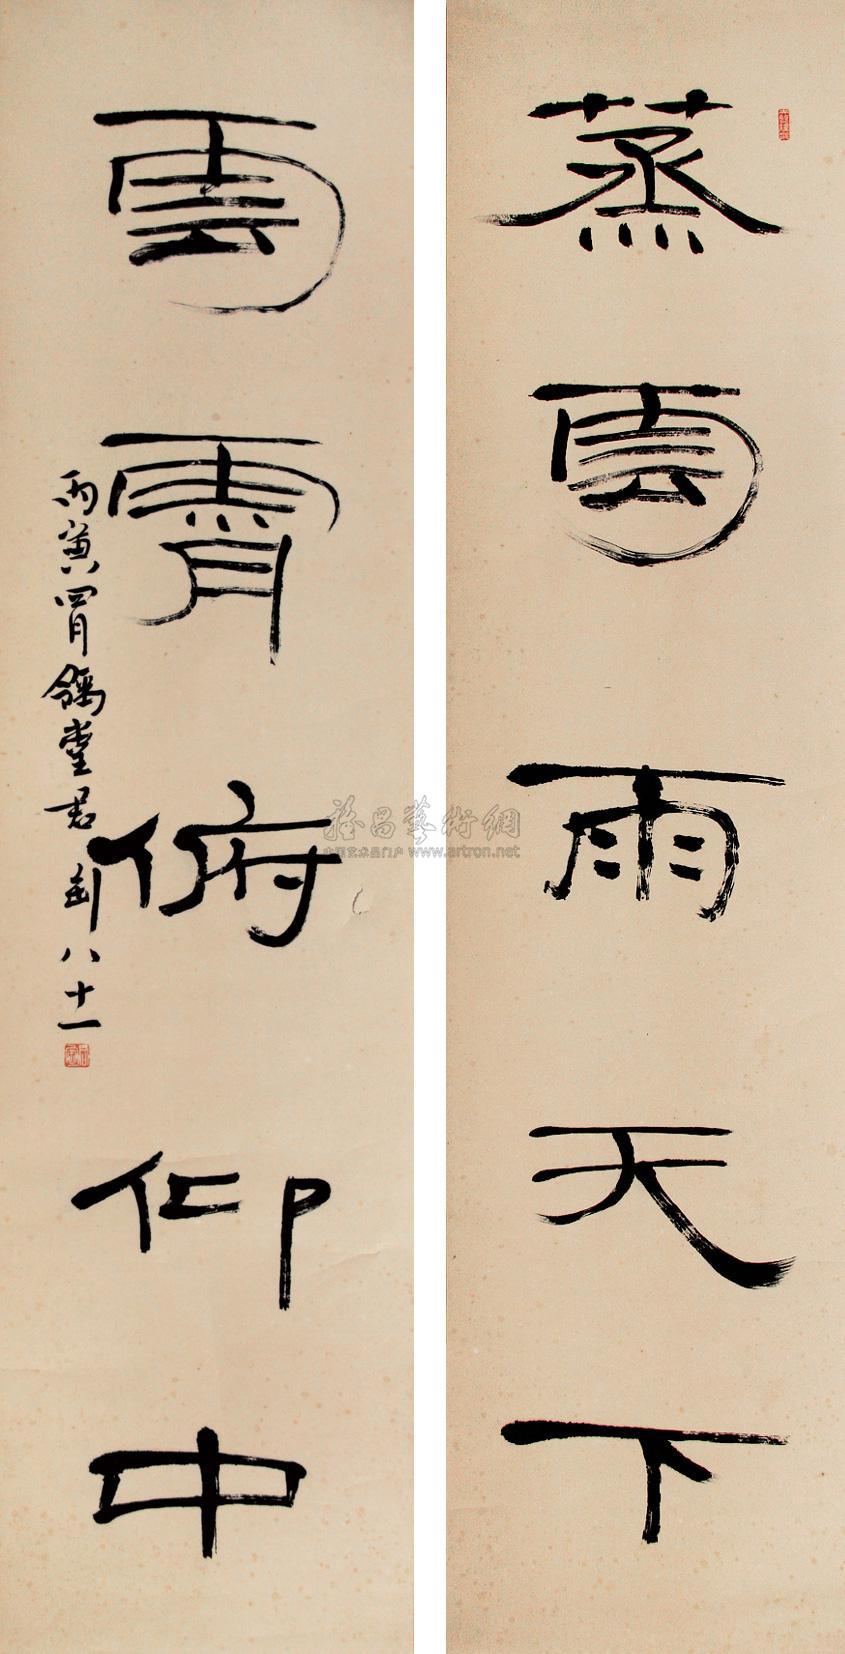 蒸雲雨天下
雲霄俯仰中
丙寅四月鷭堂君 八十一
雅昌藝術網
中国艺术品门户 www.artron.net